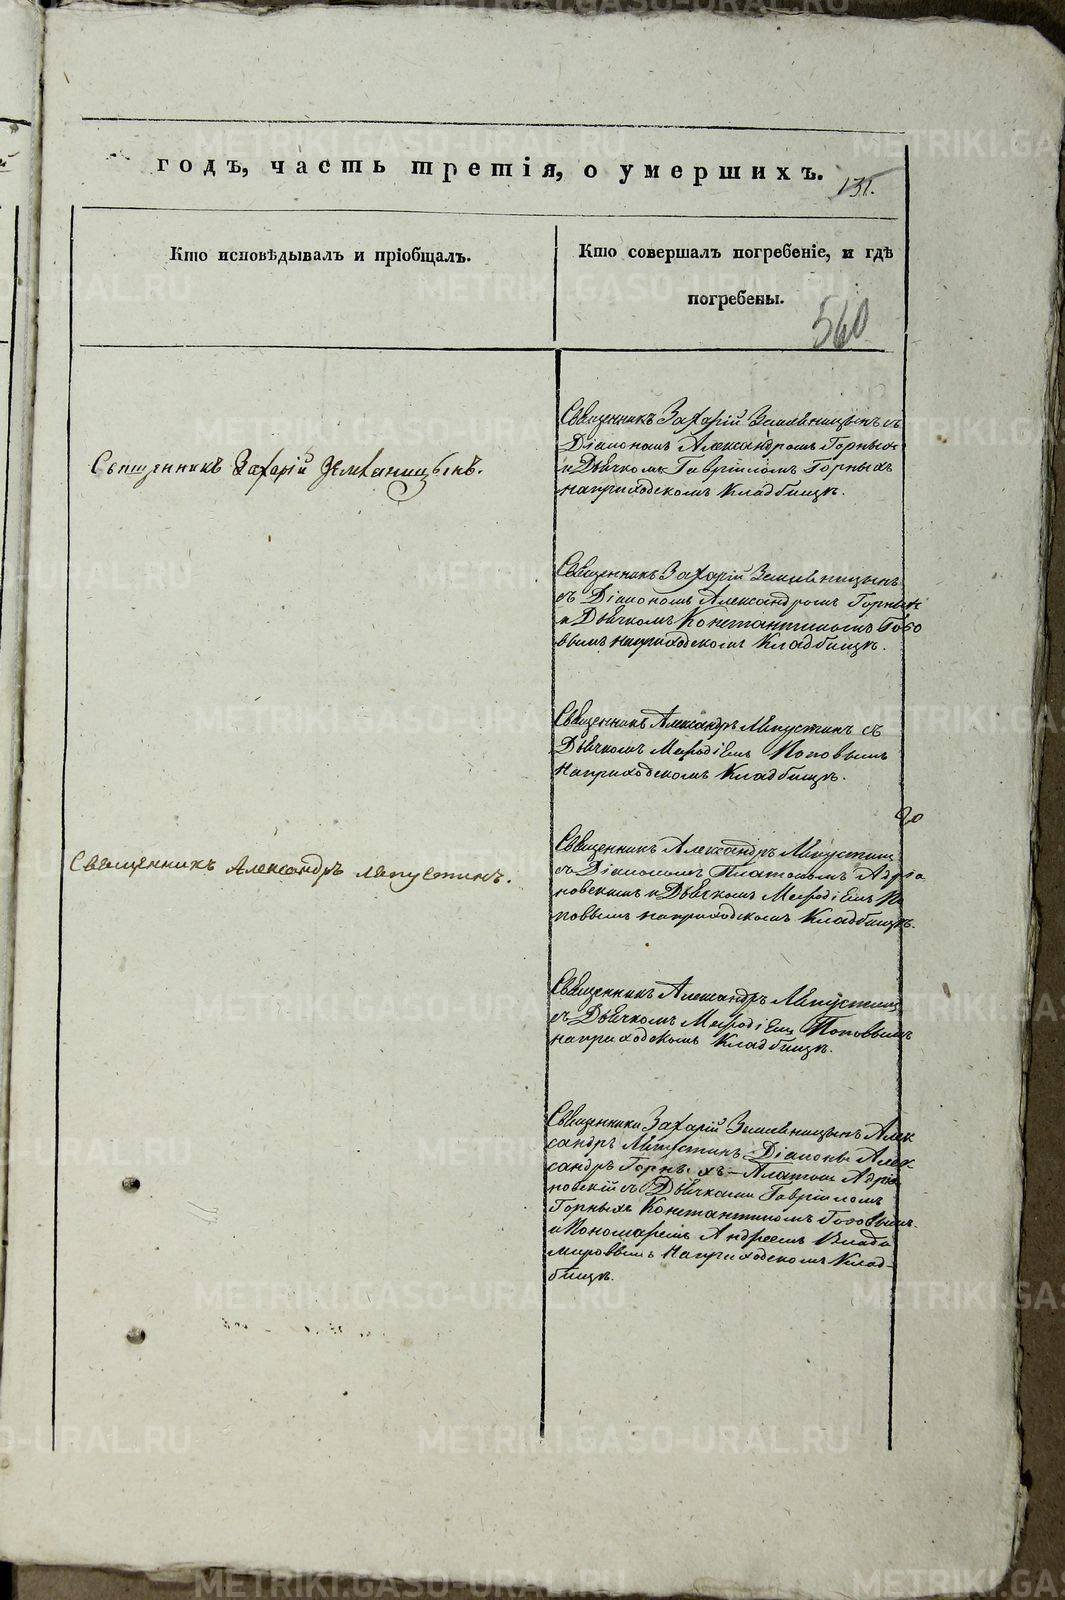 годъ, часть третія, о умершихъ.
131.
Кто исповѣдывалъ и пріобщалъ.
Кто совершалъ погребеніе, и гдѣ
погребены.
560
Священникъ Захарій Земляницынъ съ
Діакономъ Александромъ Горныхъ
и Дьячкомъ Гавріиломъ Горныхъ
на приходскомъ Кладбищѣ.
Священникъ Захарій Земляницынъ.
Священникъ Захарій Земляницынъ
съ Діакономъ Александромъ Горныхъ
и Дьячкомъ Константиномъ
вымъ на приходскомъ Кладбищѣ.
Священникъ Александръ Ляпустинъ съ
Дьячкомъ Меѳодіемъ Поповымъ
на приходскомъ Кладбищѣ.
Священникъ Александръ Ляпустинъ.
Священникъ Александръ Ляпустинъ
съ Діакономъ Платономъ Адріа
новскимъ и Дьячкомъ Меѳодіемъ По
повымъ на приходскомъ Кладбищѣ.
Священникъ Александръ Ляпустинъ
съ Дьячкомъ Меѳодіемъ Поповымъ
на приходскомъ Кладбищѣ.
Священники Захарій Земляницынъ Алек
сандръ Ляпустинъ Діаконы Алек
сандръ Горныхъ Платонъ Адріа
новскій съ Дьячками Гавріиломъ
Горныхъ Константиномъ
и Пономаремъ Андреемъ Влади
мировымъ на приходскомъ Клад-
бищѣ.
METRIKI.GASO-URAL.RU